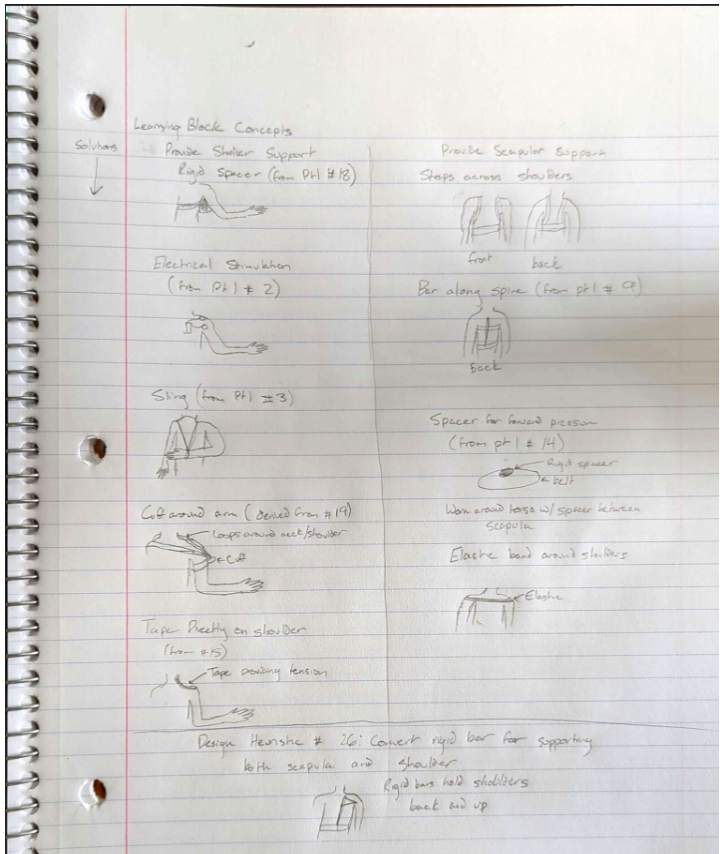 Learning Block Concepts
Solutions
Provide Sholder Support
Rigid Spacer (from Pt1 #18)
Electrical Stimulation
(from Pt 1 # 2)
Sling (from Pt1 #3)
Cuff around arm (derived from #19)
Loops around neck/shoulder
Cuff
Tape Directly on shoulder
(from #15)
Tape providing tension
Provide Scapular Support
Straps across shoulders
front back
Bar along spine (from pt1 # 9)
back
Spacer for forward pressure
(from pt 1 # 14)
Rigid spacer
belt
Worn around torso w/ spacer between
scapula
Elastic band around shoulders
Elastic
Design Heuristic # 26: Convert rigid bar for supporting
both scapula and shoulder
Rigid bars hold sholders
back and up